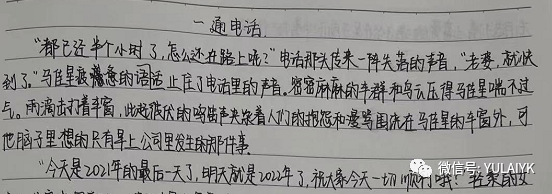 一通电话
"都已经半个小时了,怎么还在路上呢?"电话那头传来一阵失落的声音,"老婆,就快
到了。"马佳星疲惫的语活止住了电话里的声音。密密麻麻的车群和乌云压得马佳星喘不过
气。雨滴击打着车窗,此起彼伏的鸣笛声夹杂着人们的抱怨和谩骂围绕在马佳星的车窗外,可
他脑子里想的只有早上公司里发生的那件事。
"今天是2021年的最后一天了,明天就是2022年了,祝大家今天一切顺利
微信号: YULAIYK